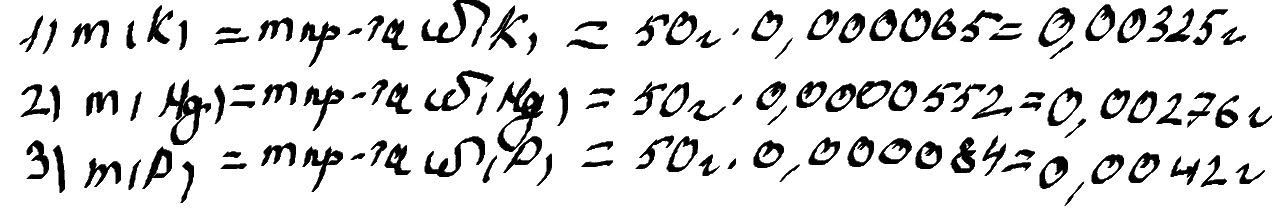 1) m(K) = mпр-та ω(K) = 50г · 0,000065 = 0,00325г
2) m(Mg) = mпр-та ω(Mg) = 50г · 0,0000552 = 0,00276г
3) m(P) = mпр-та ω(P) = 50г · 0,000084 = 0,0042г